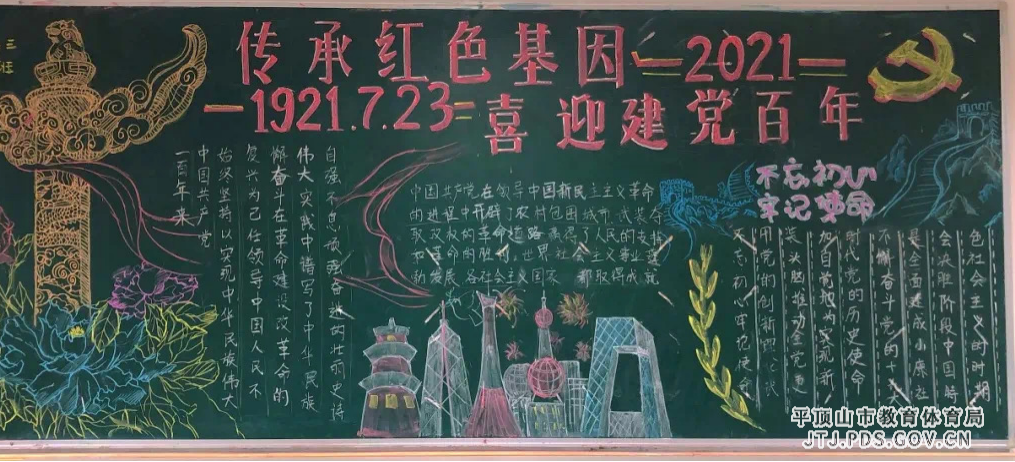 三
班
传承红色基因—2021—
—1921.7.23—喜迎建党百年
一百年来
中国共产党
始终坚持以实现中华民族伟大
复兴为己任领导中国人民不
懈奋斗在革命建设改革命的
伟大实践中谱写了中华民族
自强不息顽强奋进的壮丽史诗
中国共产党在领导中国新民主主义革命
的进程中开辟了农村包围城市、武装夺
取政权的革命道路 赢得了人民的支持
和革命的胜利。世界社会主义事业蓬
勃发展、各社会主义国 都取得成就
不忘初心
牢记使命
不忘初心牢记使命
用党的创新理论武
装头脑推动全党更
加自觉地为实现新
时代党的历史使命
不懈奋斗党的十九大
是全面建成小康社
会决胜阶段中国特
色社会主义的时期
平顶山市教育体育局
JTJ.PDS.GOV.CN